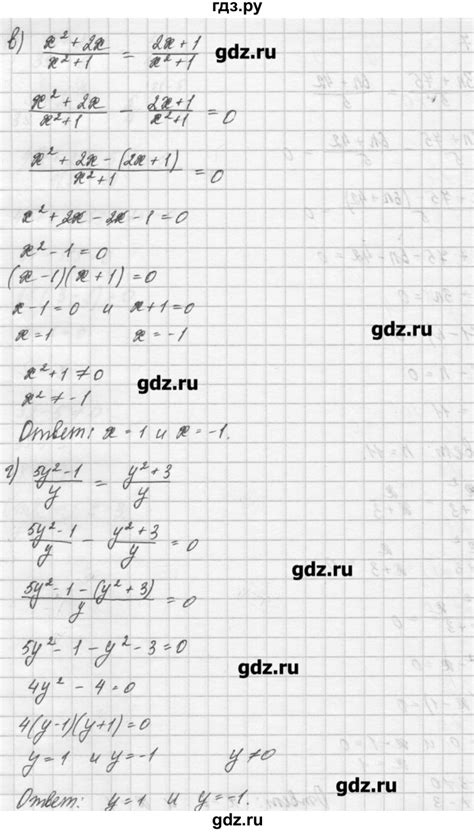 гдз.ру
в) (x²+2x)/(x²+1) = (2x+1)/(x²+1)
gdz.ru
(x²+2x)/(x²+1) - (2x+1)/(x²+1) = 0
gdz.ru
(x²+2x-(2x+1))/(x²+1) = 0
x²+2x-2x-1=0
x²-1=0
(x-1)(x+1)=0
x-1=0 и x+1=0
x=1 x=-1
gdz.ru
x²+1≠0
gdz.ru
x²≠-1
Ответ: x=1 и x=-1.
г) (5y²-1)/y = (y²+3)/y
gdz.ru
(5y²-1)/y - (y²+3)/y = 0
gdz.ru
(5y²-1-(y²+3))/y = 0
5y²-1-y²-3=0
gdz.ru
4y²-4=0
4(y-1)(y+1)=0
y=1 и y=-1 y≠0
gdz.ru
Ответ: y=1 и y=-1.
gdz.ru